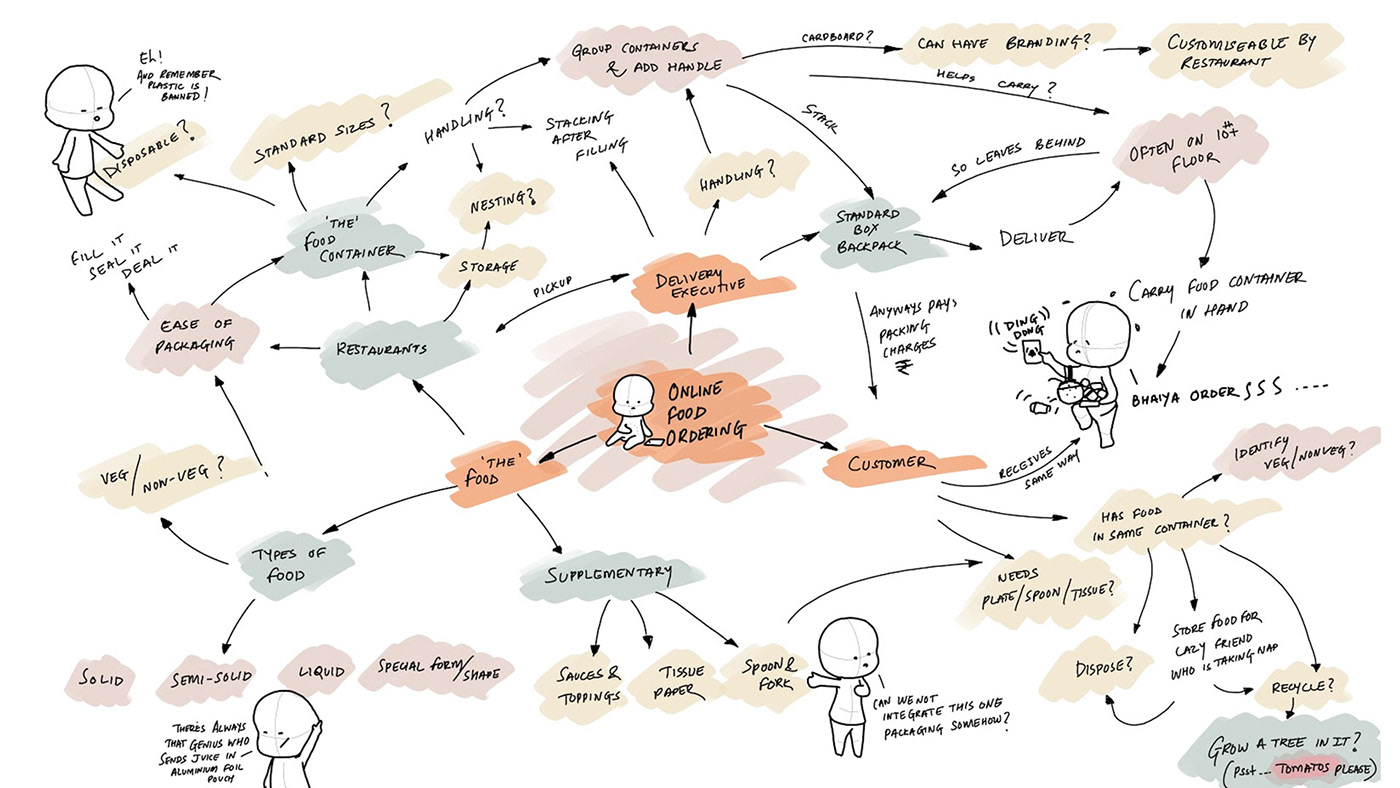 EH!
AND REMEMBER
PLASTIC IS
BANNED!
DISPOSABLE?
STANDARD SIZES?
HANDLING?
GROUP CONTAINERS
& ADD HANDLE
CARDBOARD?
CAN HAVE BRANDING?
CUSTOMISEABLE BY
RESTAURANT
HELPS CARRY?
STACK
STACKING
AFTER
FILLING
OFTEN ON 10th+
FLOOR
SO LEAVES BEHIND
HANDLING?
NESTING?
STORAGE
'THE'
FOOD
CONTAINER
STANDARD
BOX
BACKPACK
DELIVER
FILL IT
SEAL IT
DEAL IT
PICKUP
DELIVERY
EXECUTIVE
CARRY FOOD CONTAINER
IN HAND
EASE OF
PACKAGING
RESTAURANTS
ANYWAYS PAYS
PACKING
CHARGES
((DING
DONG))
BHAIYA ORDER S S S ----
ONLINE
FOOD
ORDERING
'THE'
FOOD
CUSTOMER
RECEIVES
SAME WAY
IDENTIFY
VEG/NONVEG?
VEG/NON-VEG?
HAS FOOD
IN SAME CONTAINER?
TYPES OF
FOOD
SUPPLEMENTARY
NEEDS
PLATE/SPOON/TISSUE?
SOLID
SEMI-SOLID
LIQUID
SPECIAL FORM/
SHAPE
SAUCES &
TOPPINGS
TISSUE
PAPER
SPOON &
FORK
DISPOSE?
STORE FOOD FOR
LAZY FRIEND
WHO IS TAKING NAP
RECYCLE?
THERE'S ALWAYS
THAT GENIUS WHO
SENDS JUICE IN
ALUMINIUM FOIL
POUCH
CAN WE NOT
INTEGRATE THIS ONE
PACKAGING SOMEHOW?
GROW A TREE IN IT?
(PSST... TOMATOS PLEASE)